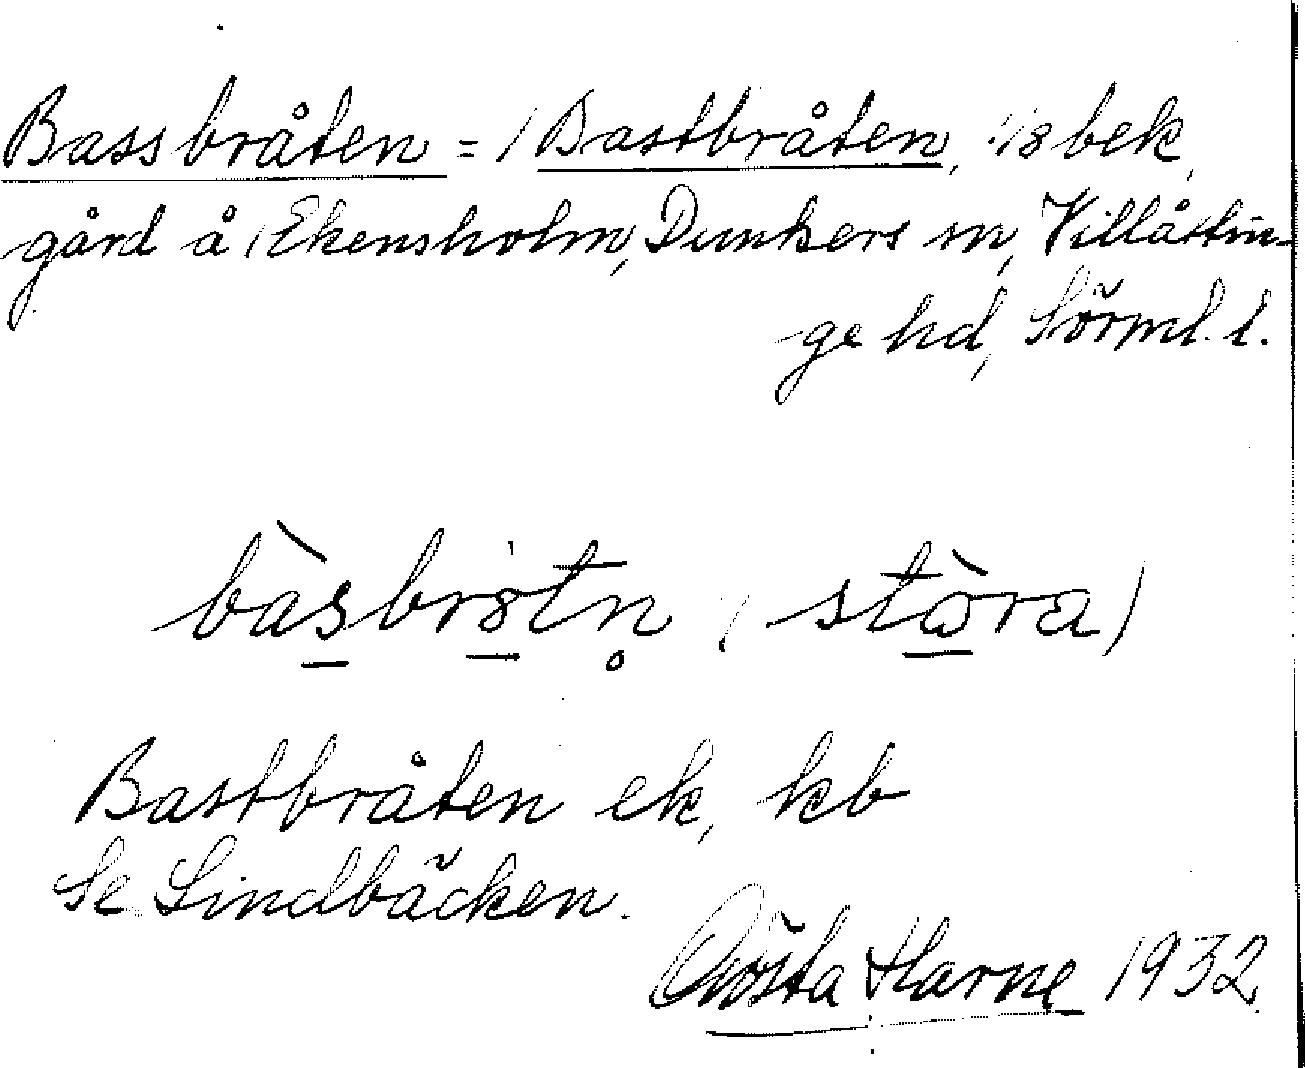 Bassbråten = (Bastbråten, 1/8 bek,
gård å (Ekensholm, Dunkers sn, Villåttin-
ge hd, Sörml. l.
bàsbrötn̥ ( stòra)
Bastbråten ek, kb
Se Lindbäcken.
Gösta Harne 1932